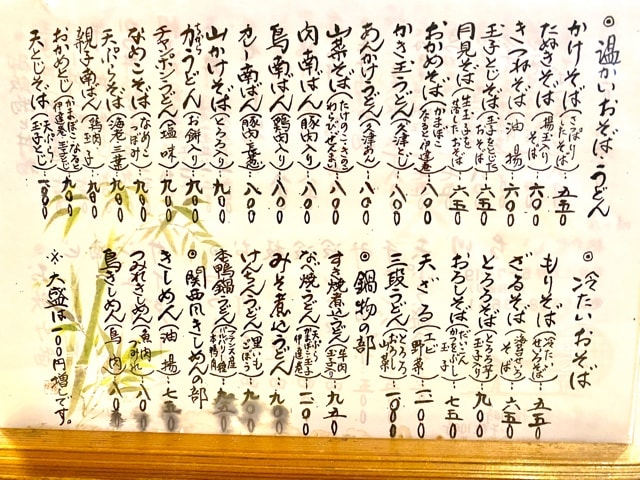 ◎温かいおそば・うどん
かけそば(さっぱりしたそば)・五五〇
たぬきそば(揚玉入りそば)・六〇〇
きつねそば(油揚)・六〇〇
玉子とじそば(玉子をとじたおそば)・六五〇
月見そば(生玉子を落したおそば)・六五〇
おかめそば(かまぼこなると伊達巻)・八〇〇
かき玉うどん(久津とじ)・八〇〇
あんかけうどん(久津あん)・八〇〇
山菜そば(たけのこきのこわらびぜんまい)・八〇〇
肉南ばん(豚肉入り)・八〇〇
鳥南ばん(鶏肉入り)・八〇〇
カレー南ばん(豚肉玉葱)・八〇〇
山かけそば(とろろ入り)・九〇〇
力うどん(お餅入り)・九〇〇
チャンポンうどん(塩味)・九〇〇
なめこそば(なめこつぼみ)・九〇〇
天ぷらそば(海老三葉)・九〇〇
親子南ばん(鶏肉玉子)・九〇〇
おかめとじ(かまぼこなると伊達巻玉子とじ)・九〇〇
天とじそば(天ぷら玉子とじ)・一〇〇〇
◎冷たいおそば
もりそば(冷たいせいろそば)・五五〇
ざるそば(海苔せいろそば)・六五〇
とろろそば(とろろ芋玉子入り)・九〇〇
おろしそば(だいこんかつをぶし玉子)・七五〇
天ざる(エビ野菜)・一一〇〇
三段うどん(とろろ山菜)・一〇〇〇
◎鍋物の部
すき焼煮込うどん(牛肉玉子入り)・九五〇
なべ焼うどん(天ぷらかまぼこ玉子伊達巻)・一一〇〇
みそ煮込うどん・九〇〇
けんちんうどん(里いもごぼう)・九〇〇
本鴨鍋うどん
◎関西風きしめんの部
きしめん(油揚)・七五〇
つみれきしめん(魚肉つみれ)・八〇〇
鳥きしめん(鳥肉)・八〇〇
※大盛は一〇〇円増しです。